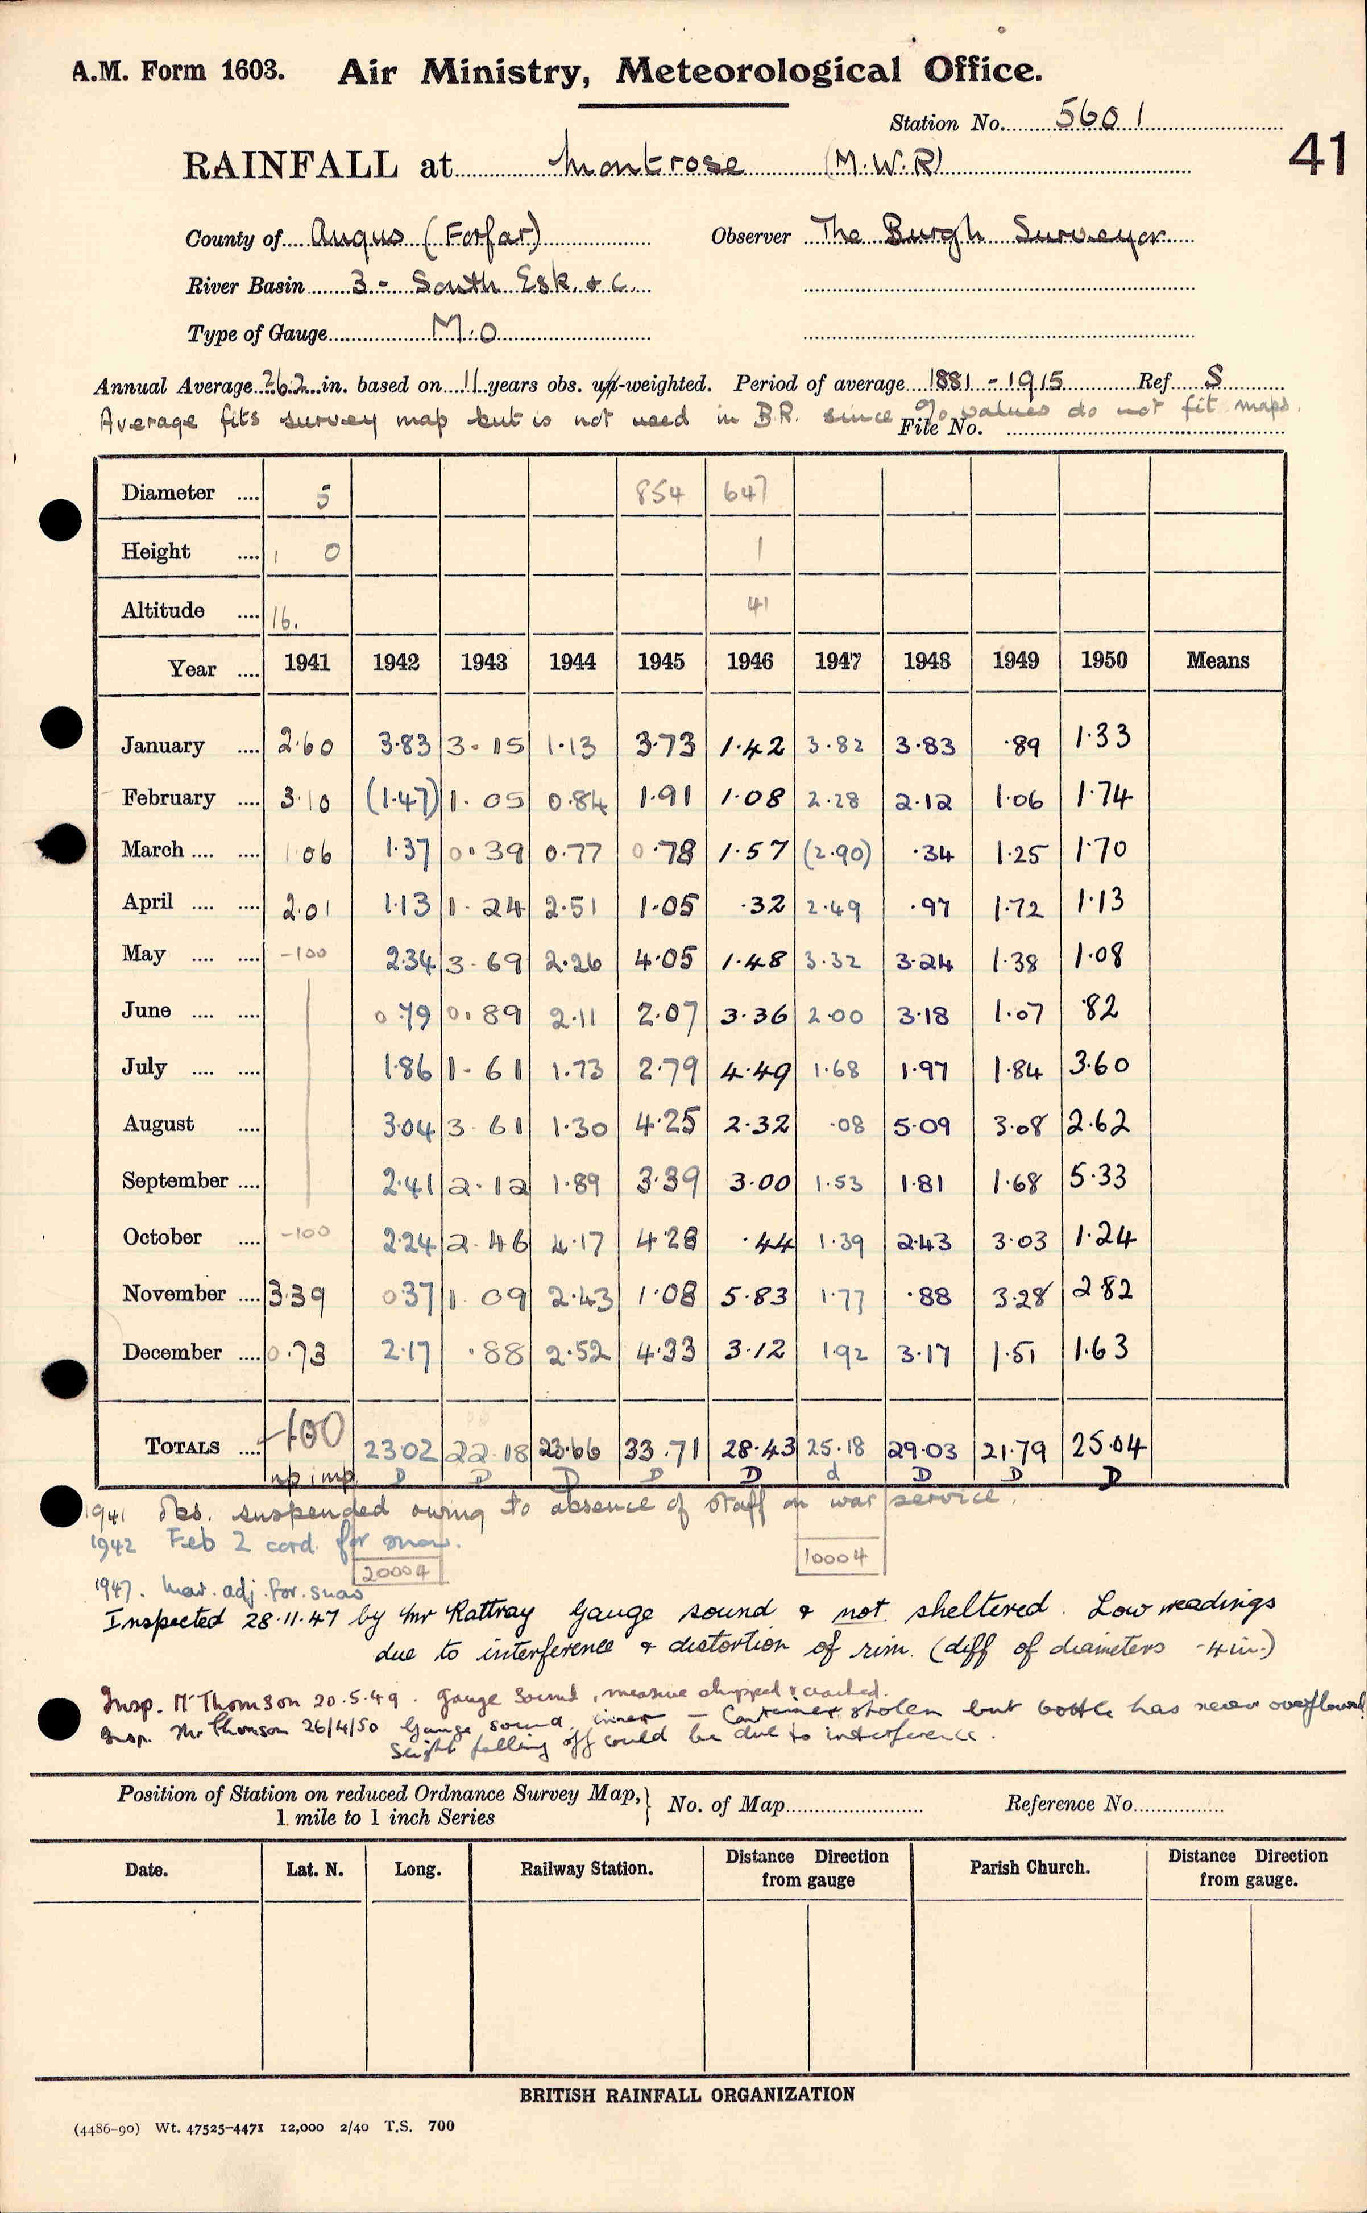 A.M. Form 1603. Air Ministry, Meteorological Office.
Station No. 5601
41
RAINFALL at Montrose (M.W.R)
County of Angus (Forfar) Observer The Burgh Surveyor
River Basin 3 - South Esk. & C.
Type of Gauge M.O
Annual Average 26.2 in. based on 11 years obs. un-weighted. Period of average 1881 - 1915 Ref S
Average fits survey map but is not used in B.R. since % values do not fit maps.
File No.
Diameter .... 5 854 647
Height .... 1 0 1
Altitude .... 16. 41
Year .... 1941 1942 1943 1944 1945 1946 1947 1948 1949 1950 Means
January .... 2.60 3.83 3.15 1.13 3.73 1.42 3.82 3.83 .89 1.33
February .... 3.10 (1.47) 1.05 0.84 1.91 1.08 2.28 2.12 1.06 1.74
March .... .... 1.06 1.37 0.39 0.77 0.78 1.57 (2.90) .34 1.25 1.70
April .... .... 2.01 1.13 1.24 2.51 1.05 .32 2.49 .97 1.72 1.13
May .... .... -100 2.34 3.69 2.26 4.05 1.48 3.32 3.24 1.38 1.08
June .... .... 0.79 0.89 2.11 2.07 3.36 2.00 3.18 1.07 .82
July .... .... 1.86 1.61 1.73 2.79 4.49 1.68 1.97 1.84 3.60
August .... 3.04 3.61 1.30 4.25 2.32 .08 5.09 3.08 2.62
September .... 2.41 2.12 1.89 3.39 3.00 1.53 1.81 1.68 5.33
October .... -100 2.24 2.46 4.17 4.28 .44 1.39 2.43 3.03 1.24
November .... 3.39 0.37 1.09 2.43 1.08 5.83 1.77 .88 3.28 2.82
December .... 0.73 2.17 .88 2.52 4.33 3.12 1.92 3.17 1.51 1.63
TOTALS .... -100 23.02 22.18 23.66 33.71 28.43 25.18 29.03 21.79 25.04
np imp D D D D D d D D D
1941 Obs. suspended owing to absence of staff on war service.
1942 Feb 2 cord. for snow.
20004 10004
1947. Mar. adj. for. snow
Inspected 28.11.47 by Mr Rattray Gauge sound & not sheltered. Low readings
due to interference & distortion of rim. (diff of diameters .4 in.)
Insp. Mr Thomson 20.5.49. Gauge sound, measure chipped & cracked.
Insp. Mr Thomson 26/4/50 Gauge sound, inner - Container stolen but bottle has never overflowed
Slight falling off could be due to interference.
Position of Station on reduced Ordnance Survey Map, 1 mile to 1 inch Series } No. of Map Reference No.
Date. Lat. N. Long. Railway Station. Distance from gauge Direction Parish Church. Distance from gauge. Direction
BRITISH RAINFALL ORGANIZATION
(4486-90) Wt. 47525-4471 12,000 2/40 T.S. 700